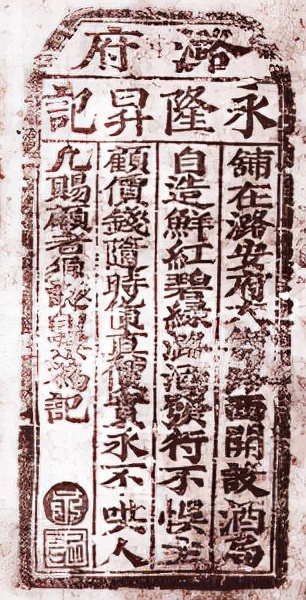 潞府
永隆昇記
舖在潞安府路西開設酒局
自造鮮紅碧綠潞酒發行不悮主
顧價錢隨時真價實永不哄人
凡賜顧者認為記